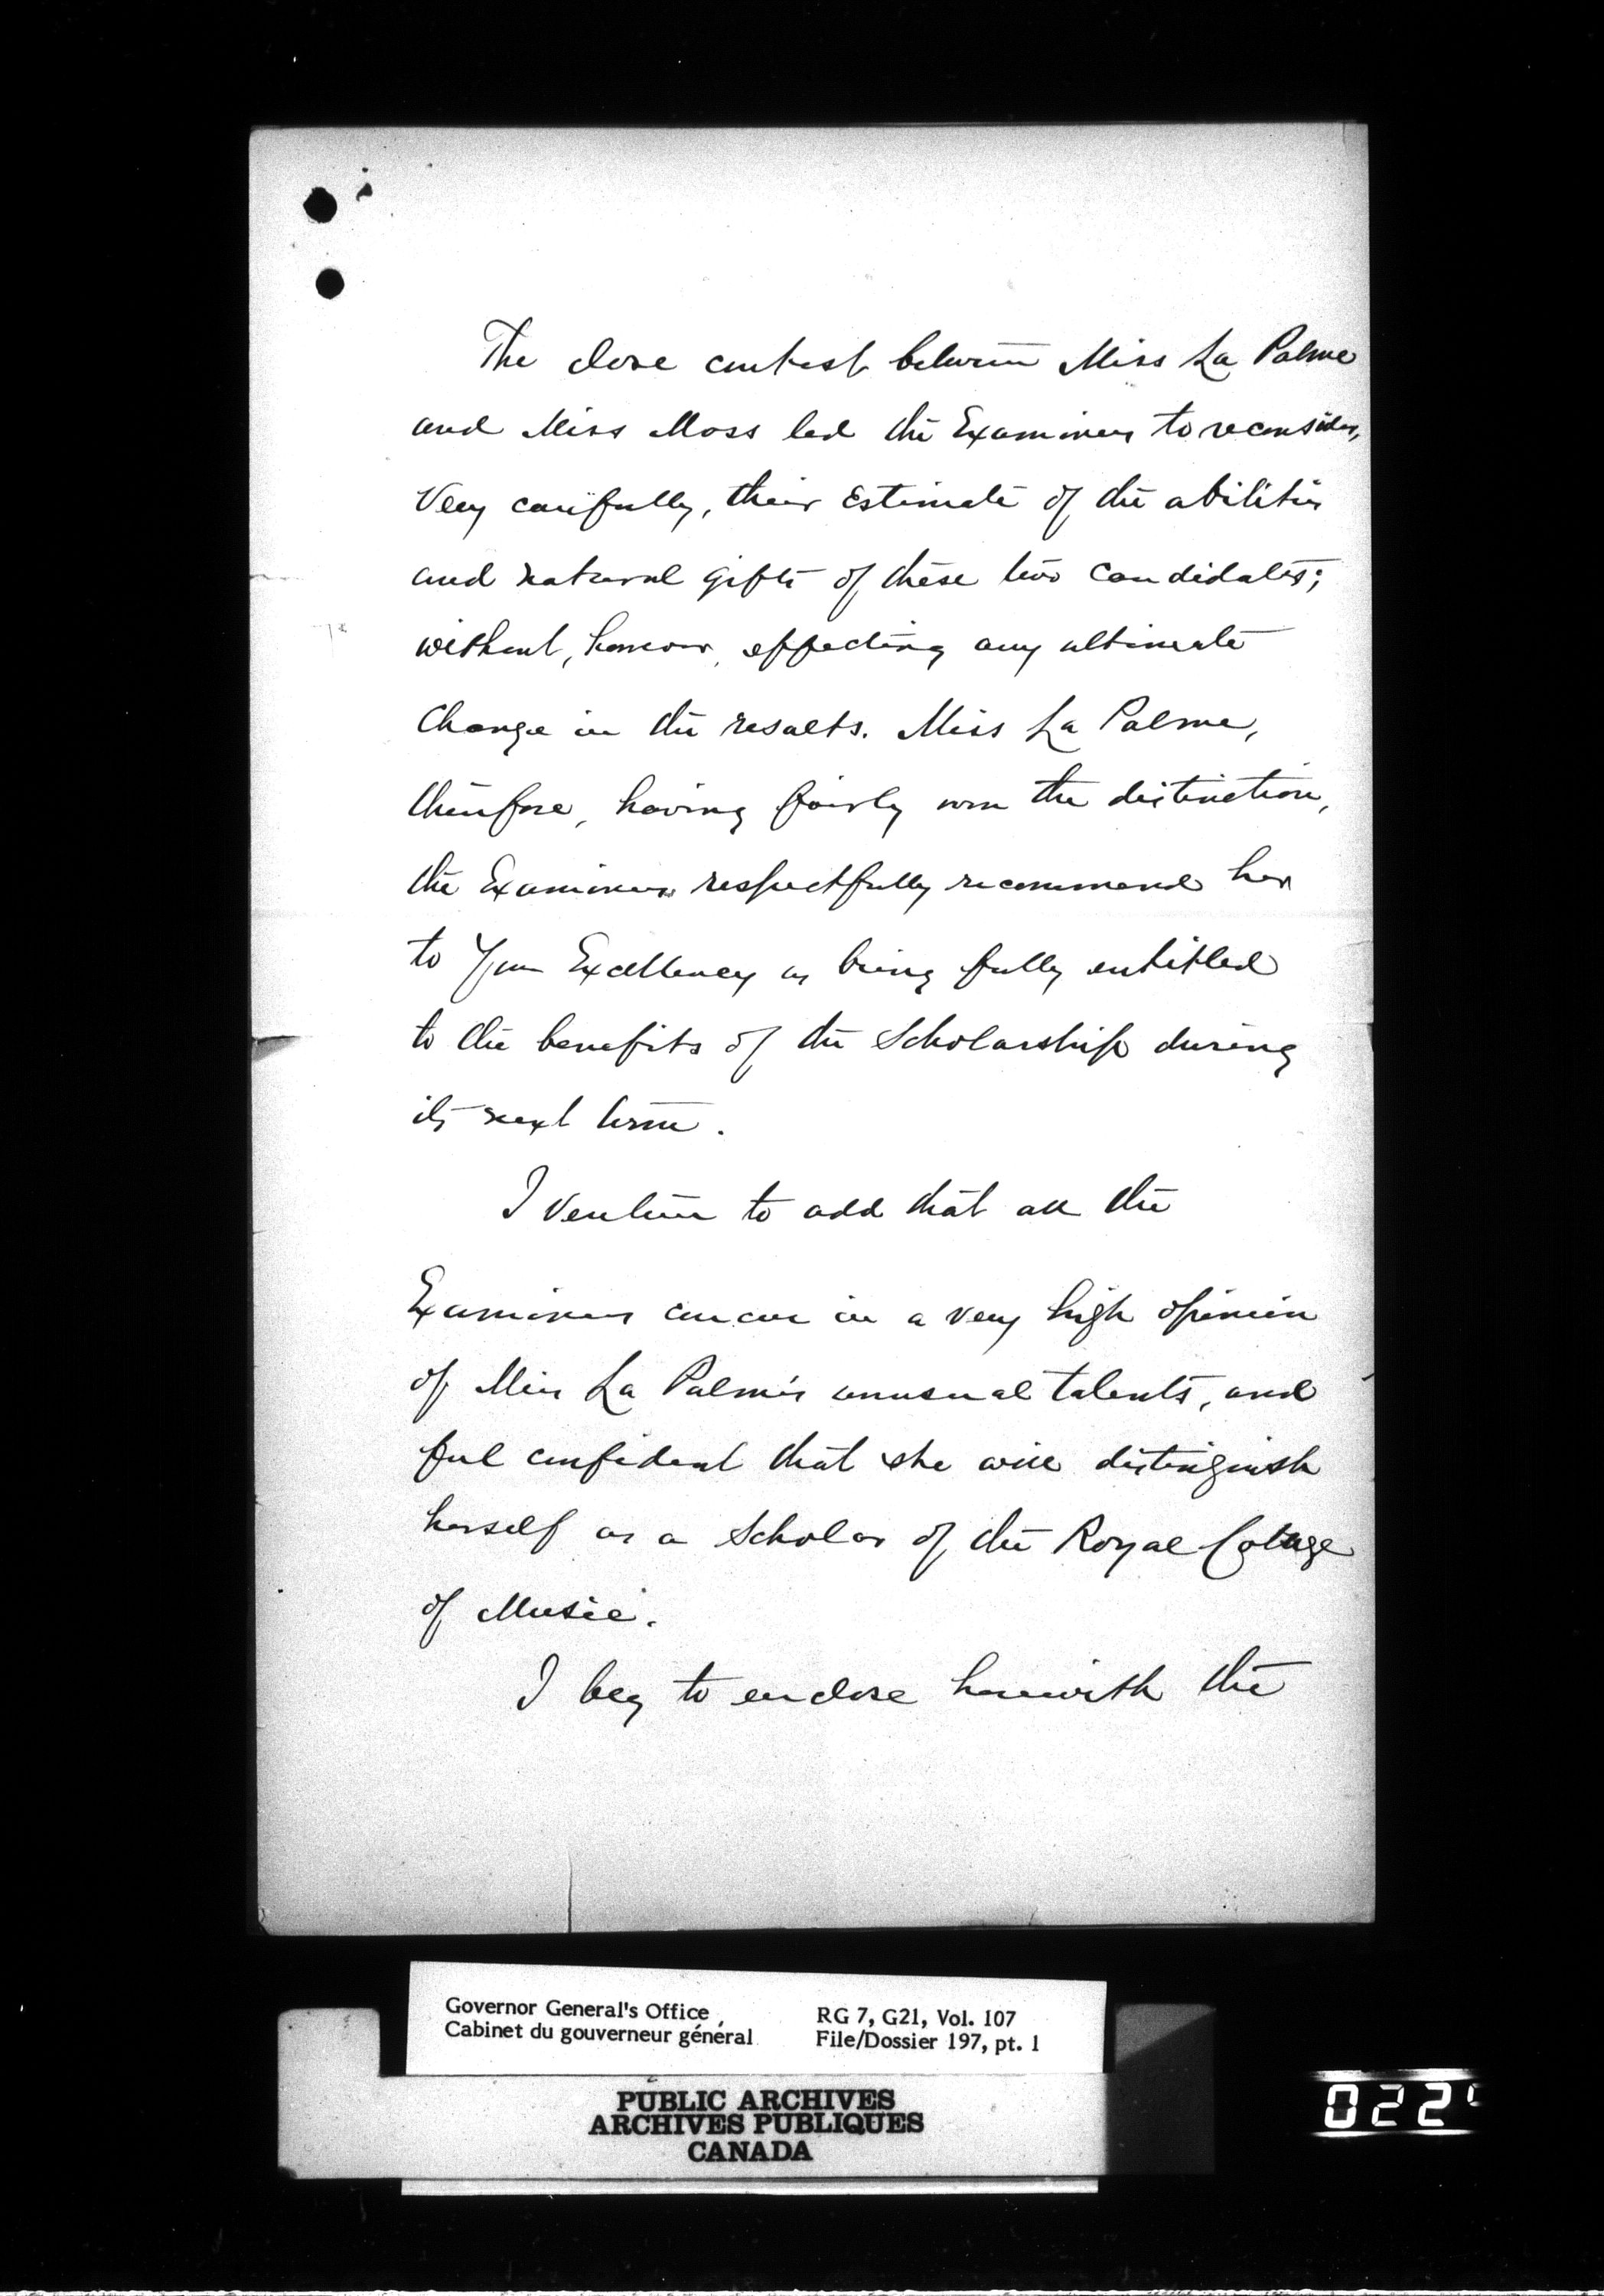 The close contest between Miss La Palme
and Miss Moss led the Examiners to reconsider,
very carefully, their estimate of the abilities
and natural gifts of these two candidates;
without, however, effecting any ultimate
change in the results. Miss La Palme,
therefore, having fairly won the distinction,
the Examiners respectfully recommend her
to Your Excellency as being fully entitled
to the benefits of the Scholarship during
its next term.
I venture to add that all the
Examiners concur in a very high opinion
of Miss La Palme's unusual talents, and
feel confident that she will distinguish
herself as a Scholar of the Royal College
of Music.
I beg to enclose herewith the
Governor General's Office
Cabinet du gouverneur général
RG 7, G21, Vol. 107
File/Dossier 197, pt. 1
PUBLIC ARCHIVES
ARCHIVES PUBLIQUES
CANADA
022